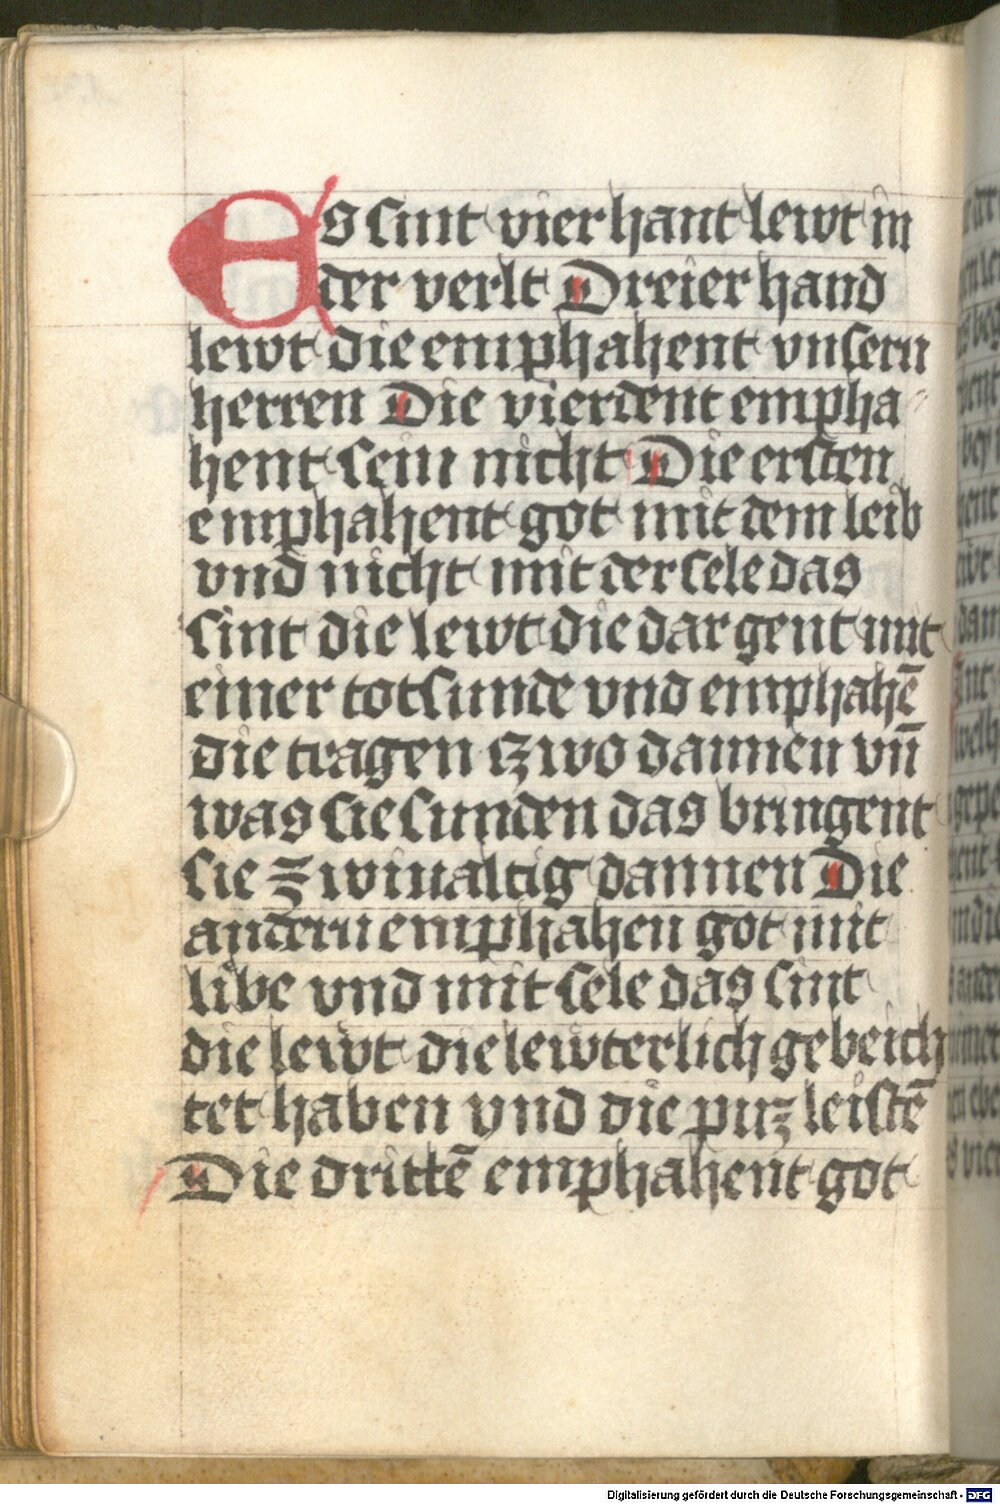 Es sint vier hant lewt in
der verlt Dreier hand
lewt die emphahent vnsern
herren Die vierdent empha
hent sein nicht Die ersten
emphahent got mit dem leib
vnd nicht mit der sele das
sint die lewt die dar gent mit
einer totsunde vnd emphahē
die tragen czwo dannen vn̄
was sie sunden das bringent
sie zwiualtig dannen Die
andern emphahen got mit
libe vnd mit sele das sint
die lewt die lewterlich gebeich
tet haben vnd die puz leistē
Die drittē emphahent got
Digitalisierung gefördert durch die Deutsche Forschungsgemeinschaft - DFG